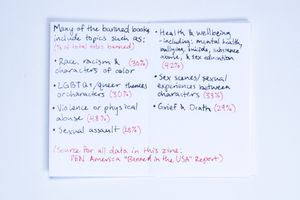 Many of the banned books
include topics such as:
(% of total titles banned)
• Race, racism &
characters of color (30%)
• LGBTQ+/queer themes
or characters (30%)
• Violence or physical
abuse (48%)
• Sexual assault (28%)
• Health & wellbeing
-including: mental health,
bullying, suicide, substance
abuse, & sex education
(42%)
• Sex scenes/sexual
experiences between
characters (33%)
• Grief & Death (29%)
(Source for all data in this zine:
PEN America "Banned in the USA" Report)